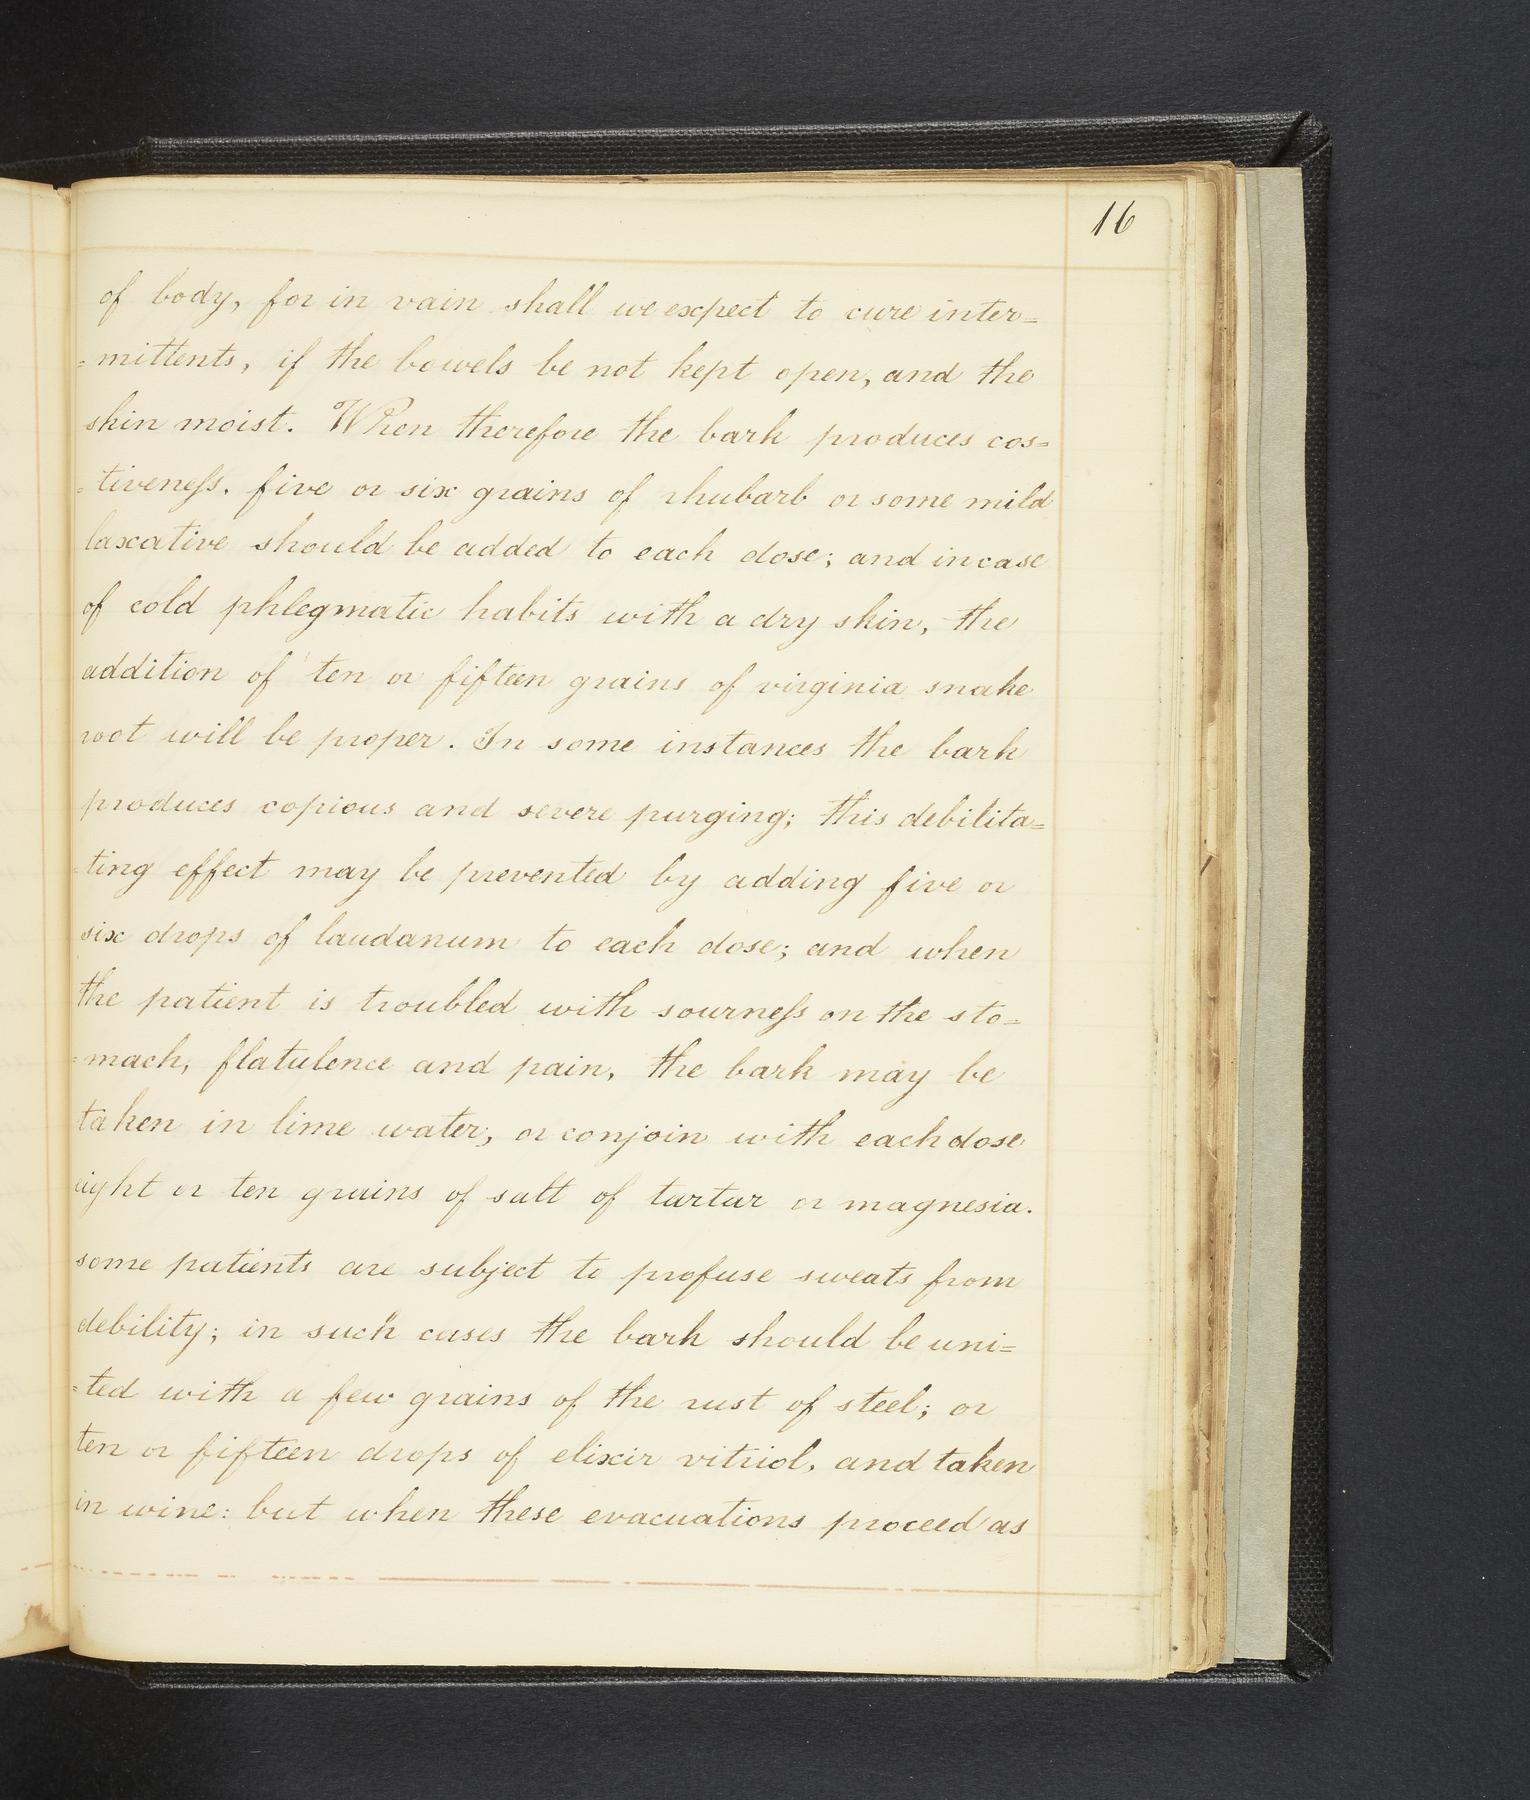 16
of body, for in vain shall we expect to cure inter=
=mittents, if the bowels be not kept open, and the
skin moist. When therefore the bark produces cos=
=tiveneſs. five or six grains of rhubarb or some mild
laxative should be added to each dose; and in case
of cold phlegmatic habits with a dry skin, the
addition of ten or fifteen grains of virginia snake
root will be proper. In some instances the bark
produces copious and severe purging; this debilita=
=ting effect may be prevented by adding five or
six drops of laudanum to each dose; and when
the patient is troubled with sourneſs on the sto=
=mach, flatulence and pain, the bark may be
taken in lime water, or conjoin with each dose
eight or ten grains of salt of tartar or magnesia.
some patients are subject to profuse sweats from
debility; in such cases the bark should be uni=
=ted with a few grains of the rust of steel; or
ten or fifteen drops of elixir vitriol, and taken
in wine: but when these evacuations proceed as